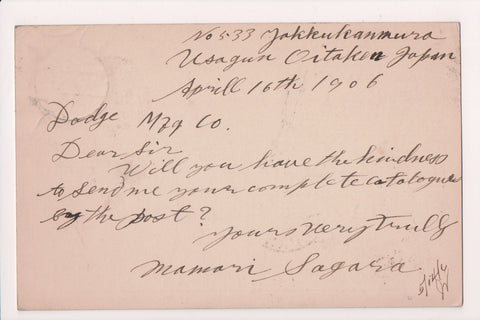 No 533 Yokkukanmura
Usagun Oitaken Japan
Aprill 16th 1906
Dodge Mfg Co.
Dear Sir
Will you have the kindness
to send me your complete catalogue
by the post?
Yours very trully
Mamori Sagara
5/12/6